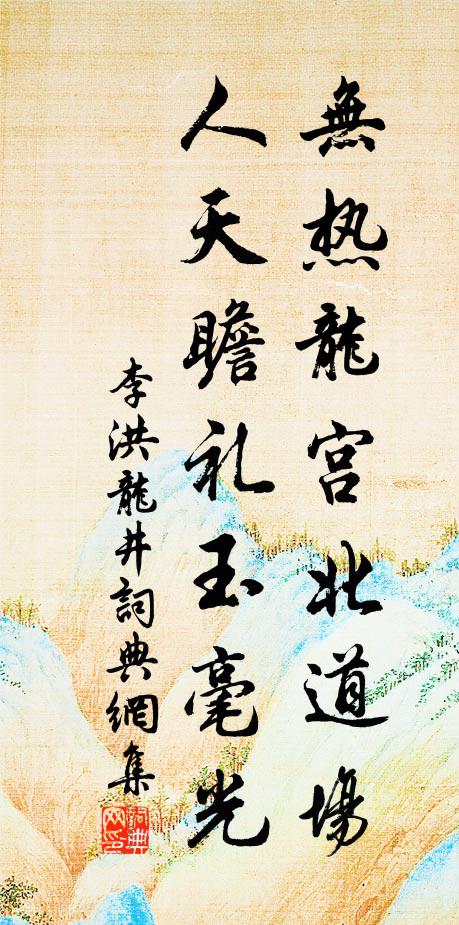 無热龍宫北道場
人天瞻礼玉毫光
李洪龍井詞典網集
詞典网印